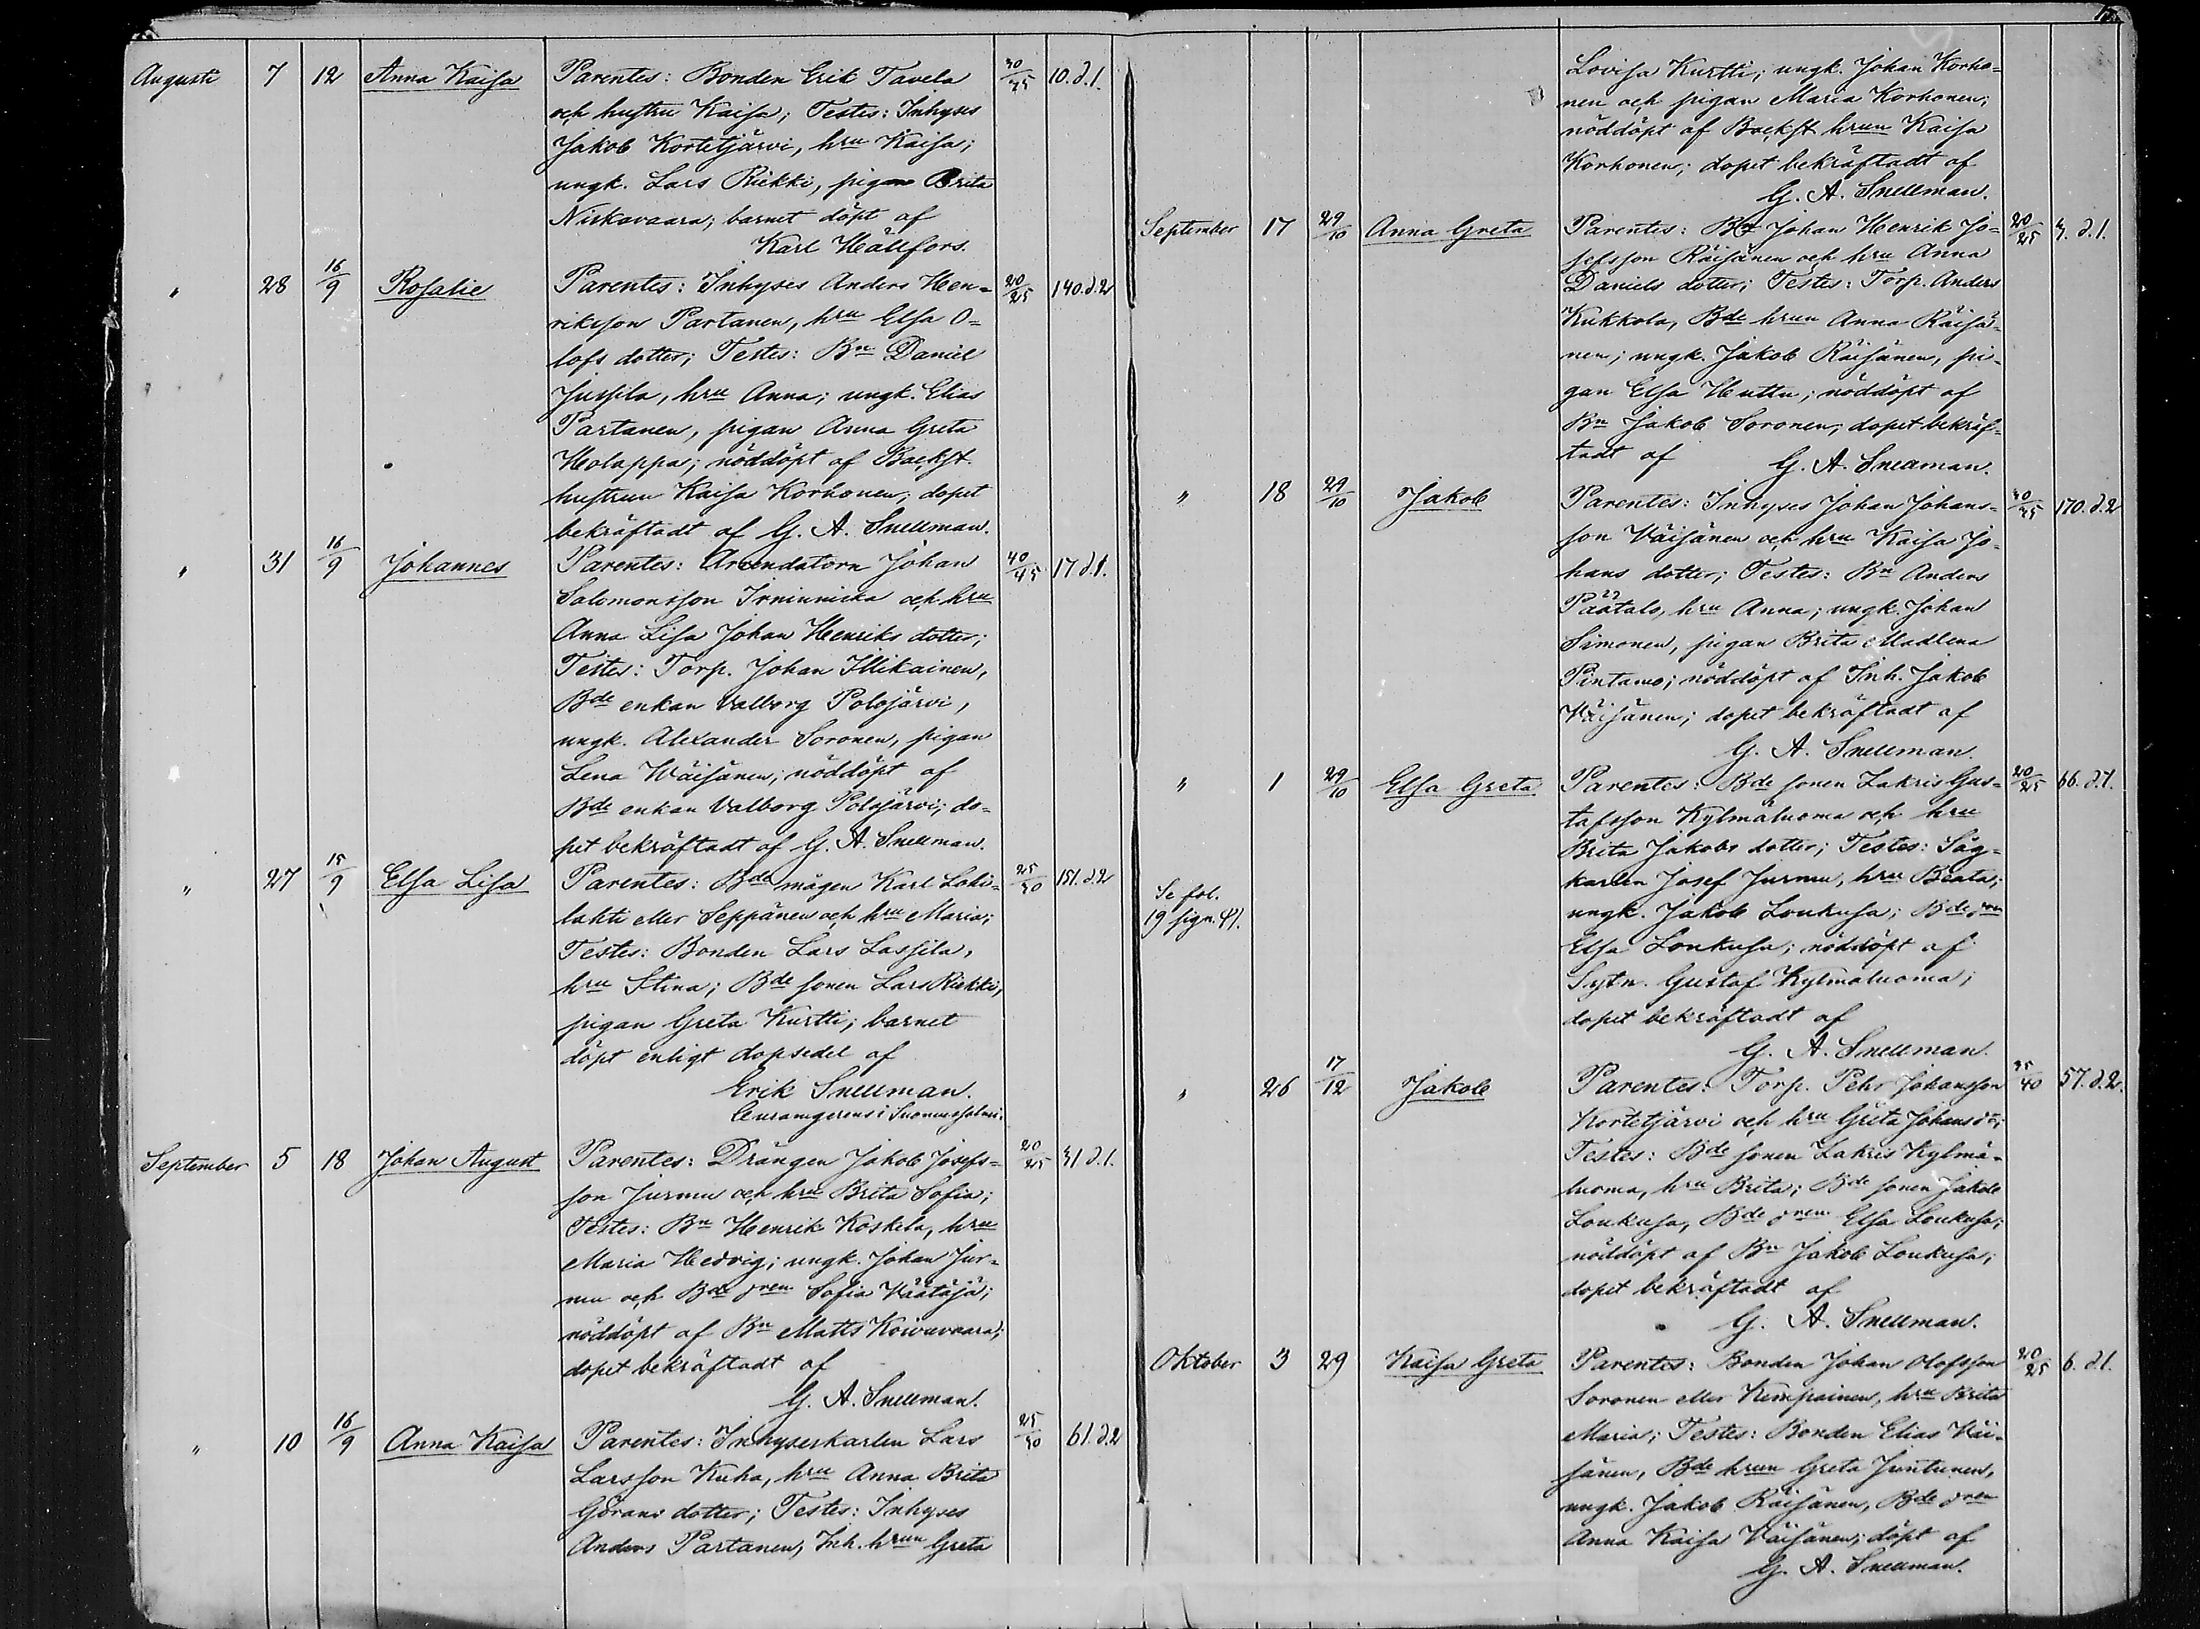 Augusti 7 12 Anna Kaisa Parentes: Bonden Erik Tavela 30/35 10.d.1.
och hustru Kaisa; Testes: Inhyses
Jakob Kortetjärvi, hru Kaisa;
ungk. Lars Riekki, pigan Brita
Niskavaara; barnet döpt af
Karl Hällfors.
" 28 16/9 Rosalie Parentes: Inhyses Anders Hen= 20/25 140.d.2
riksson Partanen, hru Elsa O=
lofs dotter; Testes: Bn Daniel
Jussila, hru Anna; ungk. Elias
Partanen, pigan Anna Greta
Holappa; nöddöpt af Backst.
hustrun Kaisa Korhonen; dopet
bekräftadt af G. A. Snellman.
" 31 16/9 Johannes Parentes: Arendatorn Johan 40/45 17.d.1.
Salomonsson Irninniska och hru
Anna Lisa Johan Henriks dotter;
Testes: Torp. Johan Illikainen,
Bde enkan Valborg Polojärvi,
ungk. Alexander Soronen, pigan
Lena Wäisänen; nöddöpt af
Bde enkan Valborg Polojärvi; do=
pet bekräftadt af G. A. Snellman.
" 27 15/9 Elsa Lisa Parentes: Bde mågen Karl Lohi= 25/30 151.d.2
lahti eller Seppänen och hru Maria;
Testes: Bonden Lars Lassila,
hru Stina; Bde sonen Lars Riekki,
pigan Greta Kurtti; barnet
döpt enligt dopsedel af
Erik Snellman.
Curamgerens i Suomussalmi.
September 5 18 Johan August Parentes: Drängen Jakob Josefs= 20/25 31.d.1.
son Jurmu och hru Brita Sofia;
Testes: Bn Henrik Koskela, hru
Maria Hedvig; ungk. Johan Jur=
mu och Bde dren Sofia Väätäjä;
nöddöpt af Bn Matts Koivuvaara;
dopet bekräftadt af
G. A. Snellman.
" 10 16/9 Anna Kaisa Parentes: Inhyseskarlen Lars 25/30 61.d.2
Larsson Kuha, hru Anna Brita
Görans dotter; Testes: Inhyses
Anders Partanen, Inh. hrun Greta
15.
Lovisa Kurtti; ungk. Johan Korho=
nen och pigan Maria Korhonen;
nöddöpt af Backst hrun Kaisa
Korhonen; dopet bekräftadt af
G. A. Snellman.
September 17 29/10 Anna Greta Parentes: Bn Johan Henrik Jo= 20/25 3.d.1.
sefsson Räisänen och hru Anna
Daniels dotter; Testes: Torp. Anders
Kukkola, Bde hrun Anna Räisä=
nen; ungk. Jakob Räisänen, pi=
gan Elsa Huttu; nöddöpt af
Bn Jakob Soronen; dopet bekräf=
tadt af G. A. Snellman.
" 18 29/10 Jakob Parentes: Inhyses Johan Johans= 30/35 170.d.2
son Väisänen och hru Kaisa Jo=
hans dotter; Testes: Bn Anders
Päätalo, hru Anna; ungk. Johan
Simonen, pigan Brita Madlena
Pintamo; nöddöpt af Inh. Jakob
Väisänen; dopet bekräftadt af
G. A. Snellman.
" 1 29/10 Elsa Greta. Parentes: Bde sonen Zakris Gus= 20/25 66.d.1.
tafsson Kylmäluoma och hru
Brita Jakobs dotter; Testes: Såg=
Se fol. karlen Josef Jurmu, hru Beata;
19 sign. ungk. Jakob Loukusa; Bde dren
Elsa Loukusa; nöddöpt af
Sytn. Gustaf Kylmäluoma;
dopet bekräftadt af
G. A. Snellman.
" 26 17/12 Jakob Parentes: Torp. Pehr Johansson 35/40 57.d.2.
Kortetjärvi och hru Greta Johansdr;
Testes: Bde sonen Zakris Kylmä=
luoma, hru Brita; Bde sonen Jakob
Loukusa, Bde dren Elsa Loukusa;
nöddöpt af Bn Jakob Loukusa;
dopet bekräftadt af
G. A. Snellman.
Oktober 3 29 Kaisa Greta Parentes: Bonden Johan Olofsson 20/25 6.d.1.
Soronen eller Kempainen, hru Brita
Maria; Testes: Bonden Elias Väi=
sänen, Bde hrun Greta Juntunen,
ungk. Jakob Räisänen, Bde dren
Anna Kaisa Väisänen; döpt af
G. A. Snellman.